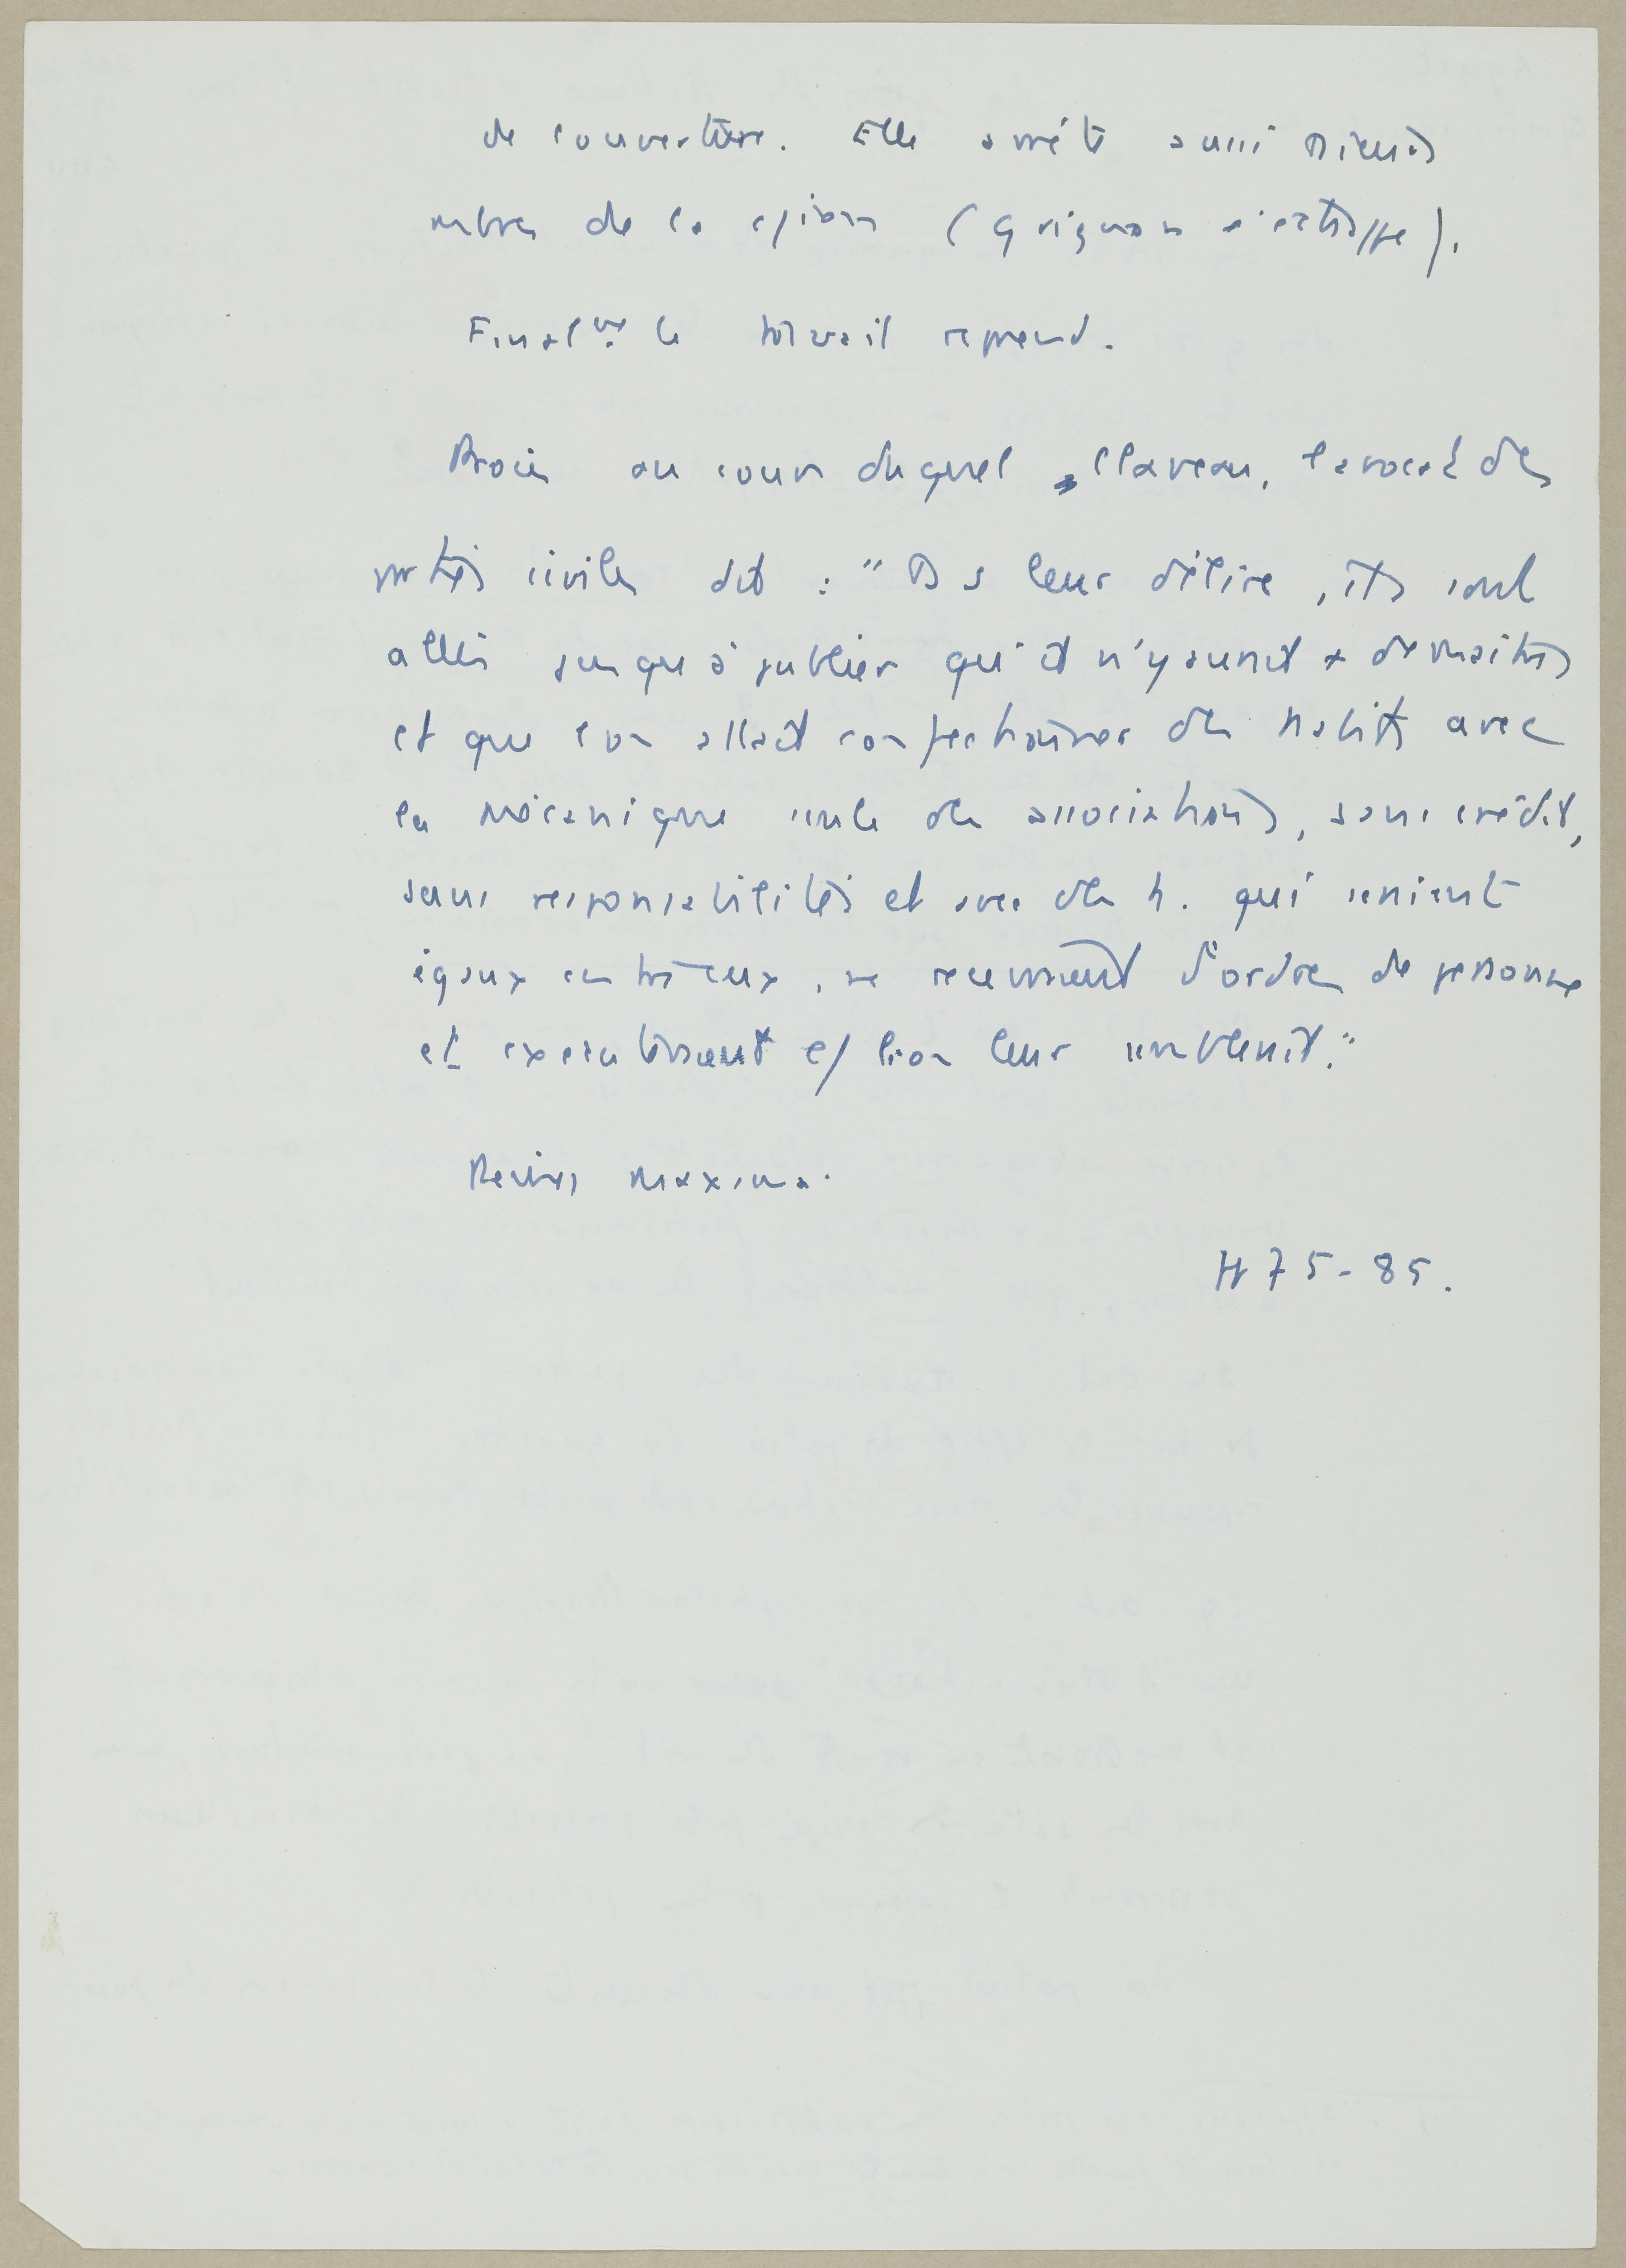 de couverture. Elle arrête aussi divers
mbres de la c/ion (Grignon s'échappe).
Final^mt. le travail reprend.
Procès au cours duquel Claveau, l'avocat des
parties civiles dit : "Ds leur délire, ils sont
allés jusqu'à publier qu'il n'y aurait + de maîtres
et que l'on allait confectionner des habits avec
la mécanique seule des associations, sans crédit,
sans responsabilités et avec des h. qui seraient
égaux entre eux, ne recevraient d'ordres de personne
et exécuteraient c/ bon leur semblerait."
Peines maxima.
H 75-85.